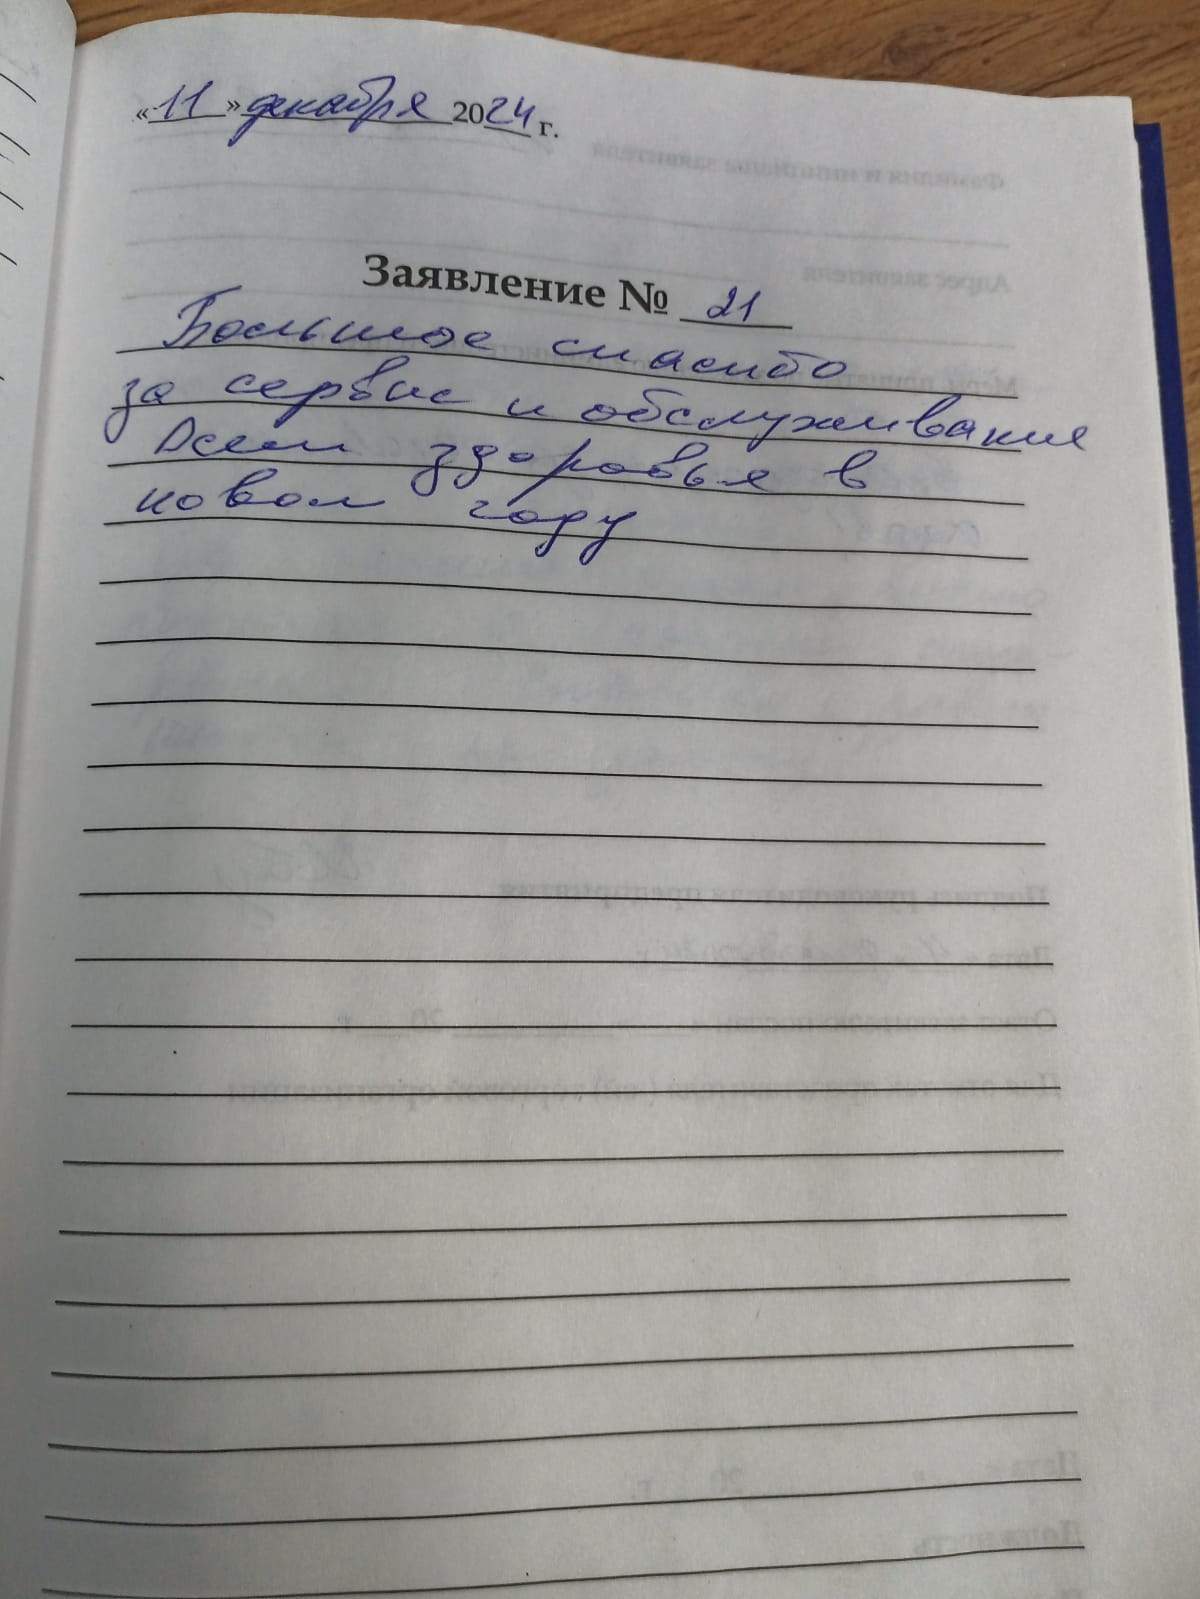 «11» декабря 2024 г.
Заявление № 21
Большое спасибо
за сервис и обслуживание
Всем здоровья в
новом году